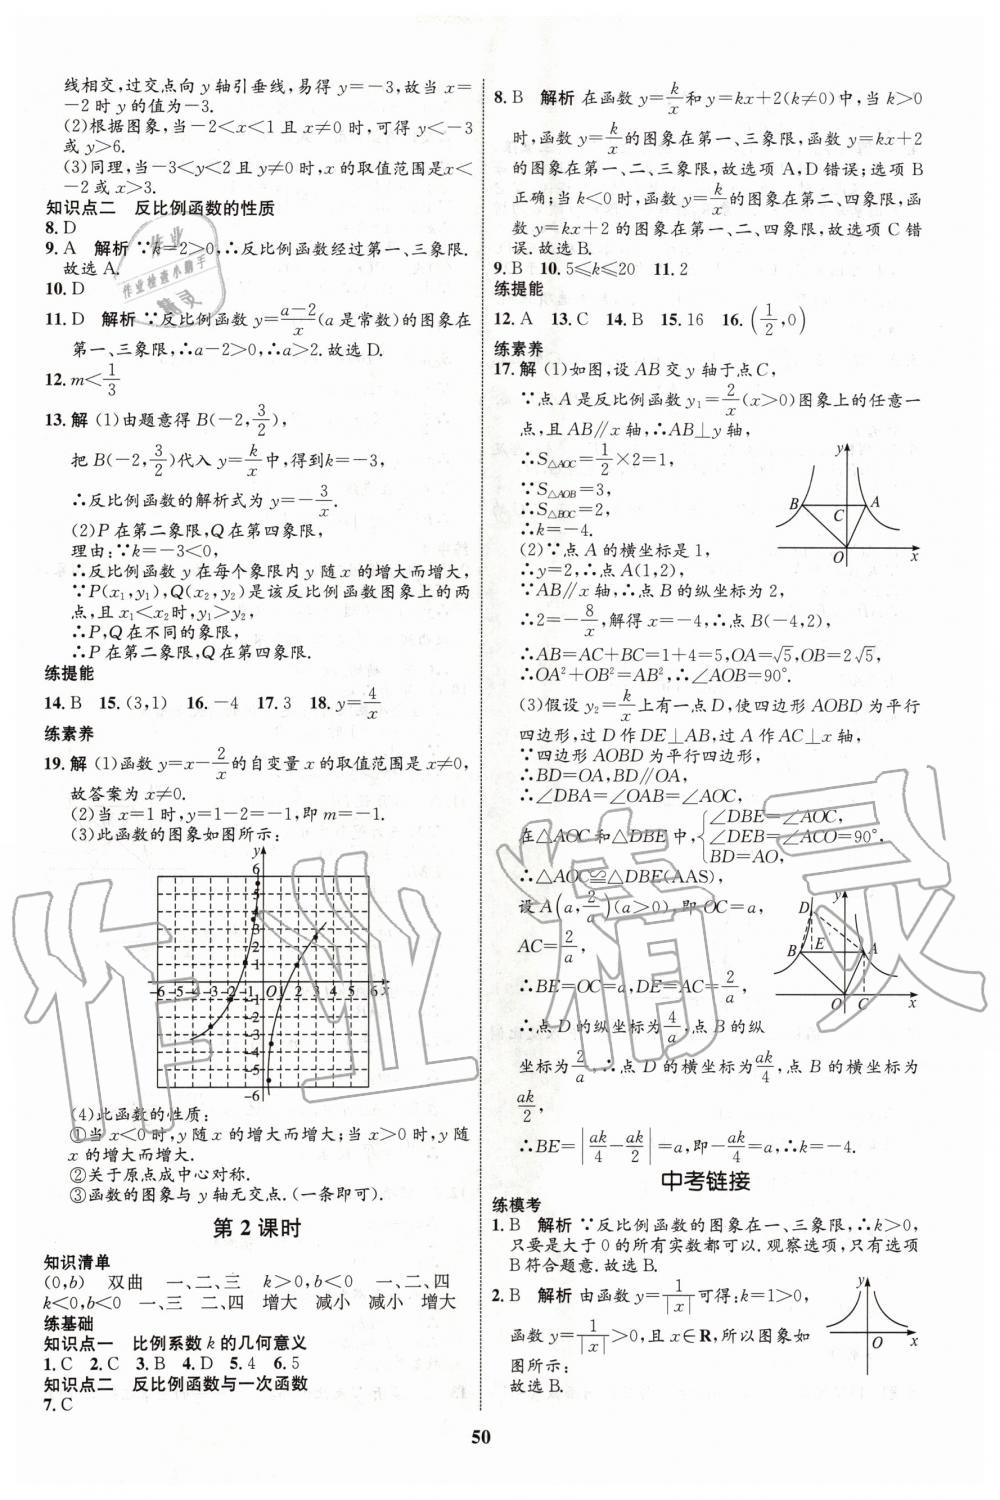 线相交,过交点向 y 轴引垂线,易得 y=-3,故当 x=
-2时 y 的值为-3.
(2)根据图象,当-2<x<1 且 x≠0 时,可得 y<-3
或 y>6.
(3)同理,当-3<y<2 且 y≠0 时,x 的取值范围是 x<
-2 或 x>3.
知识点二 反比例函数的性质
8. D
9. A 解析 ∵k=2>0,∴反比例函数经过第一、三象限.
故选 A.
10. D
11. D 解析 ∵反比例函数 y=(a-2)/x (a 是常数)的图象在
第一、三象限,∴a-2>0,∴a>2.故选 D.
12. m<1/3
13. 解 (1)由题意得 B(-2,3/2),
把 B(-2,3/2)代入 y=k/x中,得到 k=-3,
∴反比例函数的解析式为 y=-3/x.
(2)P 在第二象限,Q 在第四象限,
理由:∵k=-3<0,
∴反比例函数 y 在每个象限内 y 随 x 的增大而增大,
∵P(x₁,y₁),Q(x₂,y₂)是该反比例函数图象上的两
点,且 x₁<x₂时,y₁>y₂,
∴P,Q 在不同的象限,
∴P 在第二象限,Q 在第四象限.
练提能
14. B 15. (3,1) 16. -4 17. 3 18. y=4/x
练素养
19. 解 (1)函数 y=x-2/x的自变量 x 的取值范围是 x≠0,
故答案为 x≠0.
(2)当 x=1 时,y=1-2=-1,即 m=-1.
(3)此函数的图象如图所示:
y
6
5
4
3
2
1
-6 -5 -4 -3 -2 -1 O 1 2 3 4 5 6 x
-1
-2
-3
-4
-5
-6
(4)此函数的性质:
①当 x<0 时,y 随 x 的增大而增大;当 x>0 时,y 随
x 的增大而增大.
②关于原点成中心对称.
③函数的图象与 y 轴无交点.(一条即可).
第 2 课时
知识清单
(0,b) 双曲 一、二、三 k>0,b<0 一、二、四
k<0,b<0 一、三 二、四 增大 减小 减小 增大
练基础
知识点一 比例系数 k 的几何意义
1. C 2. C 3. B 4. D 5. 4 6. 5
知识点二 反比例函数与一次函数
7. C
8. B 解析 在函数 y=k/x和 y=kx+2(k≠0)中,当 k>0
时,函数 y=k/x的图象在第一、三象限,函数 y=kx+2
的图象在第一、二、三象限,故选项 A,D 错误;选项 B
正确;当 k<0 时,函数 y=k/x的图象在第二、四象限,函
数 y=kx+2 的图象在第一、二、四象限,故选项 C 错
误.故选 B.
9. B 10. 5≤k≤20 11. 2
练提能
12. A 13. C 14. B 15. 16 16. (1/2,0)
练素养
17. 解 (1)如图,设 AB 交 y 轴于点 C,
∵点 A 是反比例函数 y₁=2/x (x>0)图象上的任意一
点,且 AB∥x 轴,∴AB⊥y 轴,
∴S△AOC=1/2×2=1,
∵S△AOB=3,
∴S△BOC=2,
∴k=-4.
y
B C A
O x
(2)∵点 A 的横坐标是 1,
∴y=2,∴点 A(1,2),
∵AB∥x 轴,∴点 B 的纵坐标为 2,
∴2=-8/x,解得 x=-4,∴点 B(-4,2),
∴AB=AC+BC=1+4=5,OA=√5,OB=2√5,
∴OA²+OB²=AB²,∴∠AOB=90°.
(3)假设 y₂=k/x上有一点 D,使四边形 AOBD 为平行
四边形,过 D 作 DE⊥AB,过 A 作 AC⊥x 轴,
∵四边形 AOBD 为平行四边形,
∴BD=OA,BD∥OA,
∴∠DBA=∠OAB=∠AOC,
在△AOC 和△DBE 中,{∠DBE=∠AOC, ∠DEB=∠ACO=90°. BD=AO,
∴△AOC≌△DBE(AAS),
设 A(a,2/a)(a>0),即 OC=a,
AC=2/a,
∴BE=OC=a,DE=AC=2/a,
∴点 D 的纵坐标为4/a,点 B 的纵
坐标为2/a,∴点 D 的横坐标为ak/4,点 B 的横坐标为
ak/2,
y
D
B E A
O C x
∴BE=|ak/4-ak/2|=a,即-ak/4=a,∴k=-4.
中考链接
练模考
1. B 解析 ∵反比例函数的图象在一、三象限,∴k>0,
只要是大于 0 的所有实数都可以.观察选项,只有选项
B 符合题意.故选 B.
2. B 解析 由函数 y=1/|x|可得:k=1>0,
函数 y=1/|x|>0,且 x∈R,所以图象如
图所示:
故选 B.
y
O x
50
作业
作业检查小助手
精灵
作业精灵